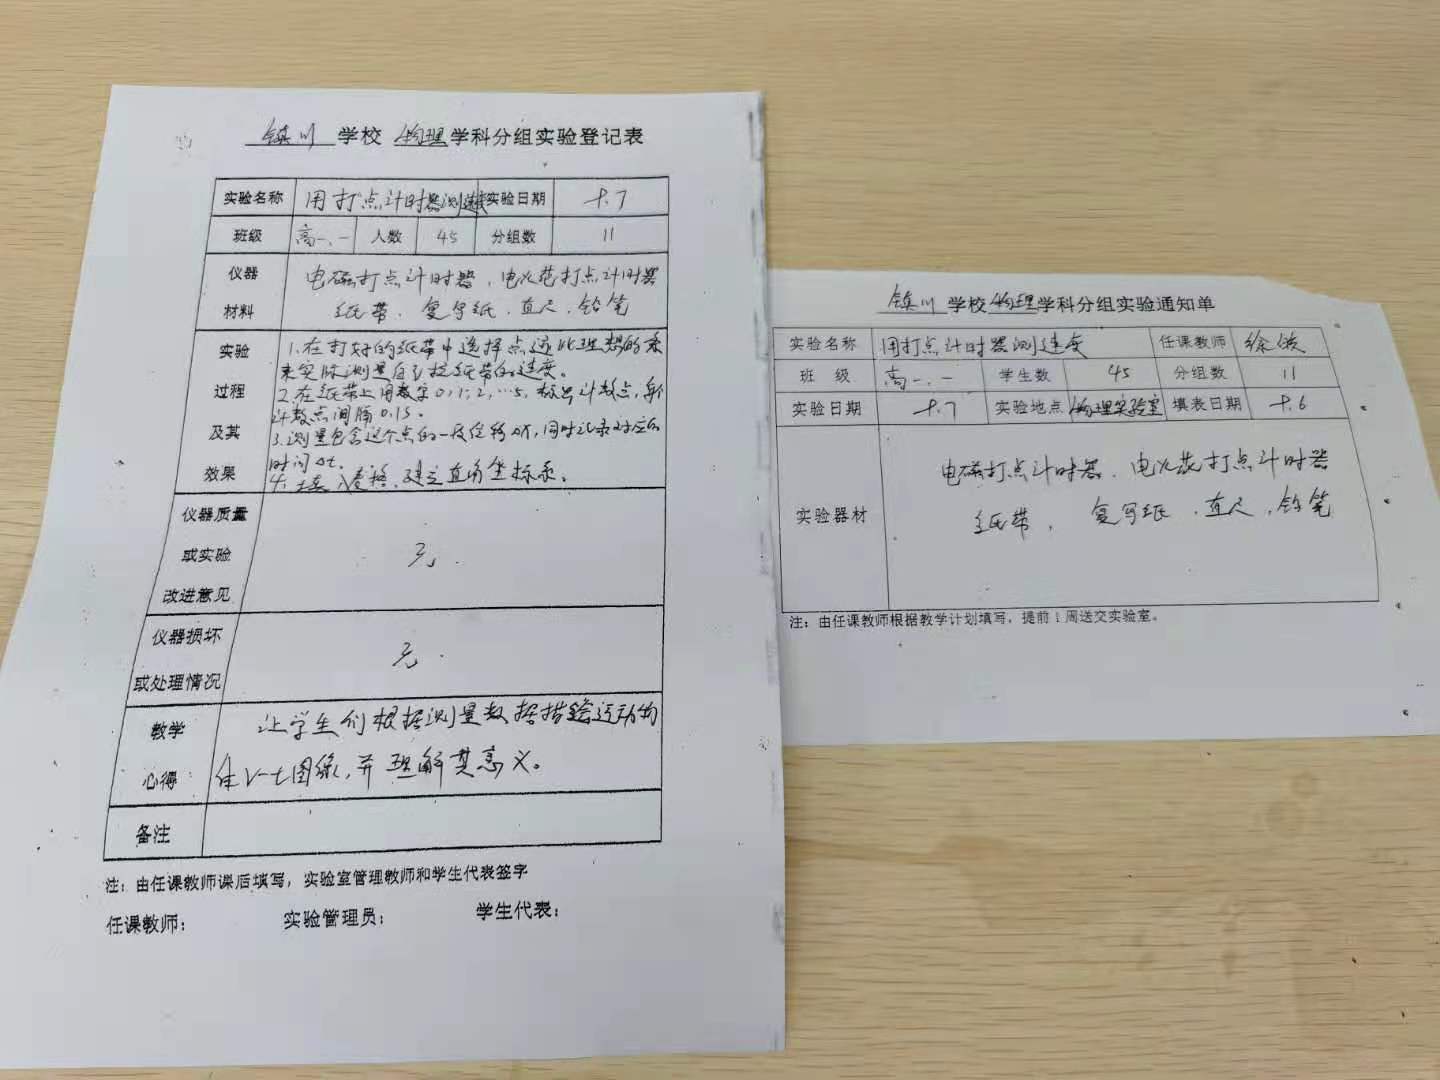 镇川 学校 物理 学科分组实验登记表
实验名称 用打点计时器测速度 实验日期 9.7
班级 高一.一 人数 45 分组数 11
仪器 电磁打点计时器、电火花打点计时器
材料 纸带、复写纸、直尺、铅笔
实验 1.在打好的纸带中选择点迹比理想的来
来实际测量自己拉纸带的速度。
过程 2.在纸带上用数字0,1,2,…5,标出计数点,每
计数点间隔0.1s.
及其 3.测量包含这个点的一段位移Δx,同时记录对应的
时间Δt.
效果 4.填入表格,建立直角坐标系。
仪器质量
或实验 无.
改进意见
仪器损坏
无.
或处理情况
教学 让学生们根据测量数据描绘运动物
心得 体v-t图像,并理解其意义。
备注
注:由任课教师课后填写,实验室管理教师和学生代表签字
任课教师: 实验管理员: 学生代表:
镇川 学校 物理 学科分组实验通知单
实验名称 用打点计时器测速度 任课教师 徐
班 级 高一.一 学生数 45 分组数 11
实验日期 9.7 实验地点 物理实验室 填表日期 9.6
电磁打点计时器、电火花打点计时器
实验器材 纸带、复写纸、直尺、铅笔
注:由任课教师根据教学计划填写,提前1周送交实验室。